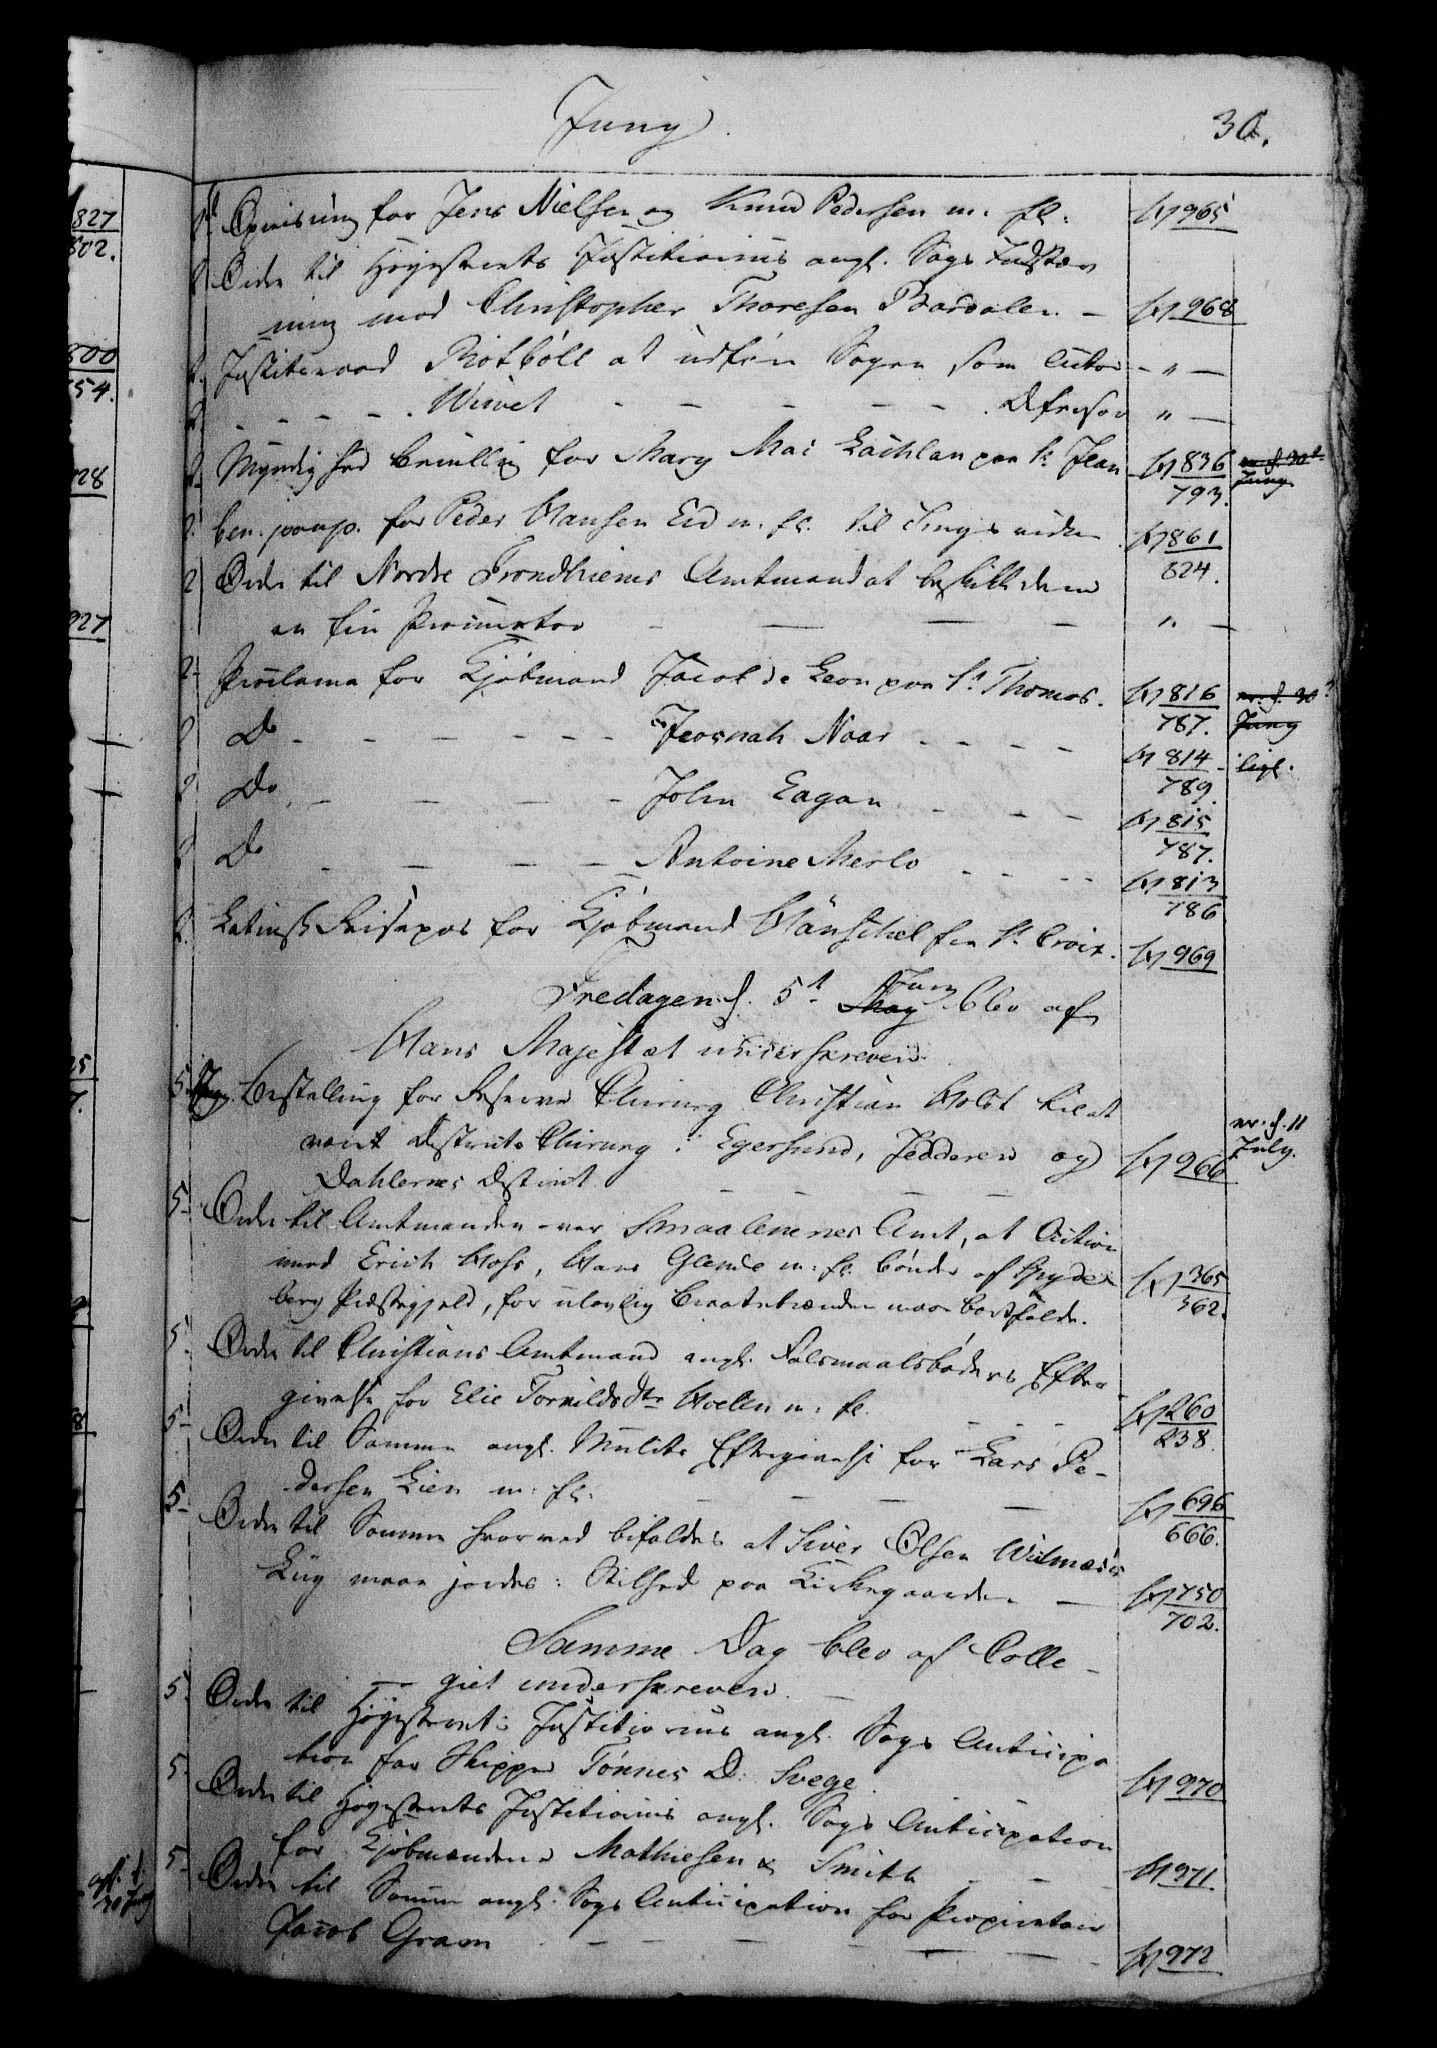 Juny.
30.
2 Opreisning for Jens Nielsen og Knud Pedersen m: fl: N 965
2 Ordre til Höyesterets Justitiarius angl. Sags Indstæv
ning mod Christopher Thoresen Bardalen — N 968
2. Justitsraad Rotböll at udföre Sagen som Actor — " —
2 - - - . Wivet - - - - - . Defensor " —
2. Myndigheds Bevilling for Mary Mac Lachlan paa St Jean N 836 / 793. er. d. 30t Juny
2. ben. paup. for Peder Hansen Eid m: fl: til Tings vidne N 861 / 824.
2 Ordre til Nordre Trondhiems Amtmand at beskikke dem
en fri Procurator — — — — " —
2. Proclama for Kjöbmand Jacob de Leon paa St Thomas. N 816 / 787. er. d. 30t Juny
2 Do - - - - - Jeosnah Naar - - - - N 814 / 789. ligl.
2. Do. - - - - John Eagan - - - N 815 / 787.
2 Do - - - - Antoine Merlo - - - - N 813 / 786
2. Latinsk Reisepas for Kjöbmand Hänschel fra St Croix. N 969
Fredagen d. 5t May Juny blev af
Hans Majestæt underskreven
5 Juny. Bestalling for Reserve Chirurg Christian Holst til at
være Districts Chirurg i Egersund, Jedderen og N 966 er. d. 11 July.
Dahlernes District — — — —
5- Ordre til Amtmanden over Smaalenenes Amt, at Action
mod Erich Hofs, Hans Glende m: fl: bönder af Spyde N 365 / 362.
berg Præstegjeld, for ulovlig Brændebrænden maae bortfalde.
5. Ordre til Christians Amtmand angl. Leiermaalsböders Efter
givelse for Elie Torkildsdtr Hoelen m: fl. - - - N 260 / 238.
5- Ordre til Samme angl. Mulcts Eftergivelse for Lars Pe-
dersen Lien m: fl. — — — — N 696 / 666.
5- Ordre til Samme hvorved bifaldes at Siver Olsen Widmæs
Liig maae jordes i Stilhed paa Kirkegaarden — N 750 / 702.
Samme Dag blev af Colle-
giet underskreven. —
5. Ordre til Höyesterets Justitiarius angl. Sags Anticipa
tion for Skipper Tönnes D. Svege. N 970
5. Ordre til Höyesterets Justitiarius angl. Sags Anticipation
for Kjöbmændene Mathiesen & Smith - - - N 971.
5- Ordre til Samme angl. Sags Anticipation for Proprietair
Jacob Gram - - - - - N 972